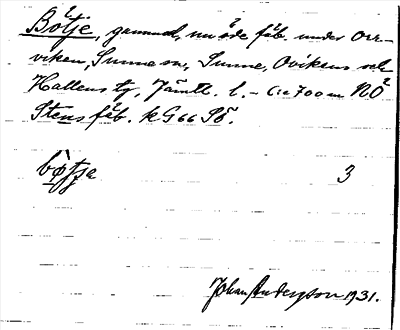 Bötje, gammal, nu öde fäb. under Orr-
viken, Sunne sn, Sunne, Ovikens och
Hallens tg, Jämtl. l. - Ca 700 m NÖ
Stens fäb. kG66 SÖ.
bøtja 3
Johan Anderson 1931.